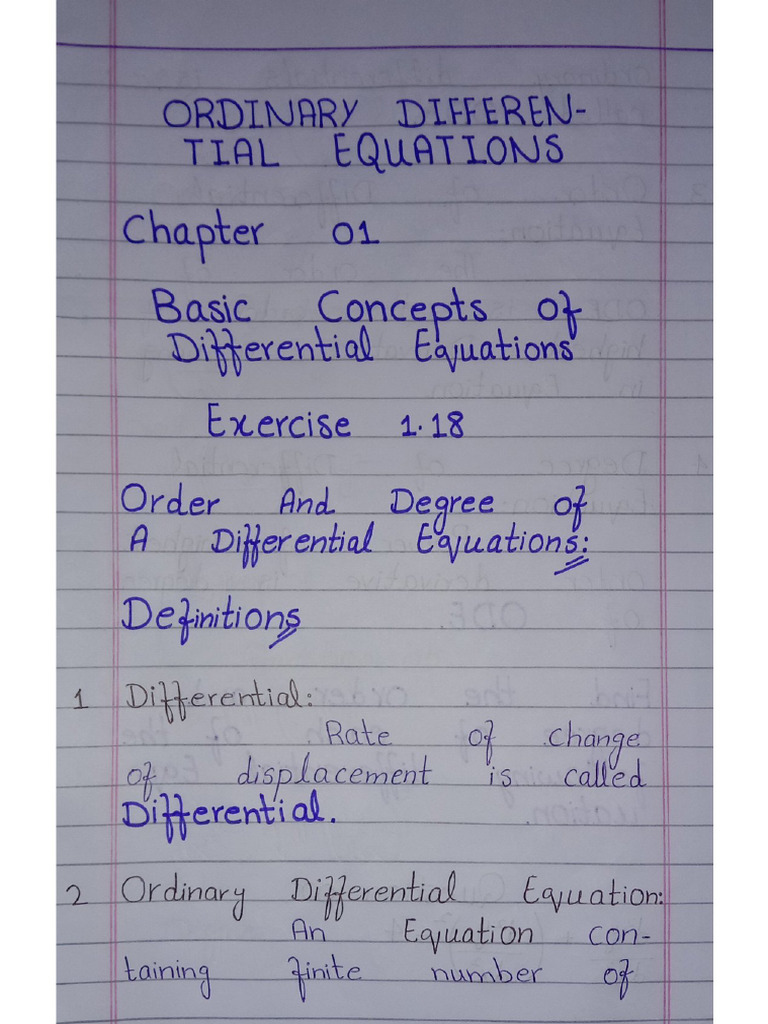 ORDINARY DIFFEREN-
TIAL EQUATIONS
Chapter 01
Basic Concepts of
Differential Equations
Exercise 1.18
Order And Degree of
A Differential Equations:
Definitions
1 Differential:
Rate of change
of displacement is called
Differential.
2 Ordinary Differential Equation:
An Equation con-
taining finite number of